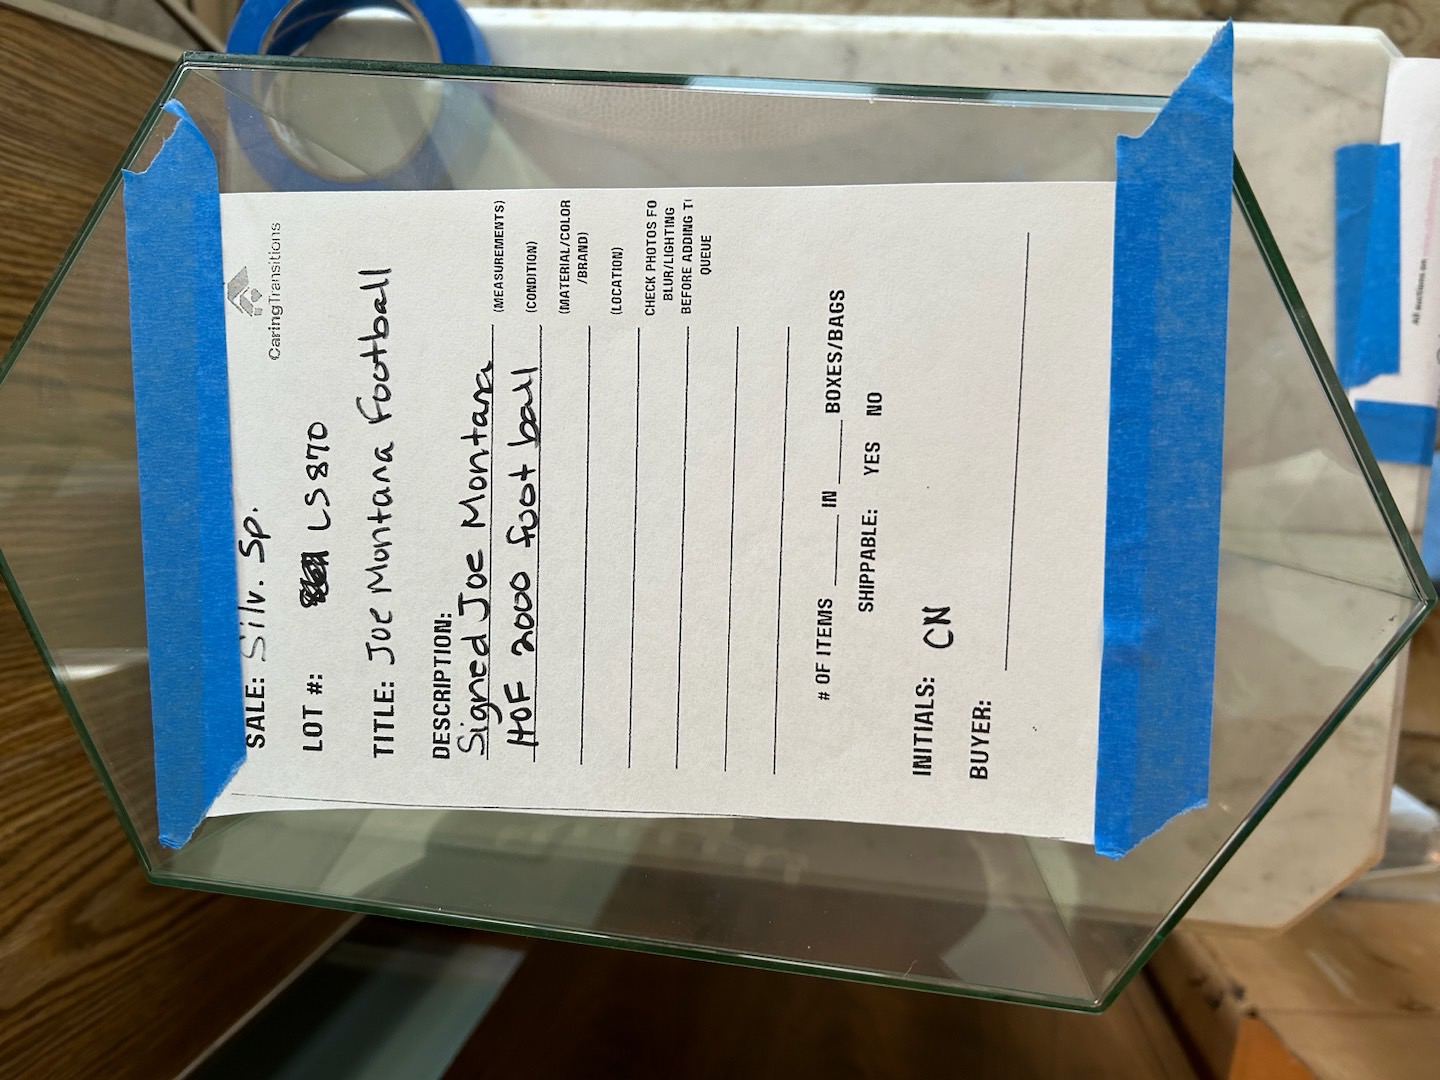 CaringTransitions
SALE: Silv. Sp.
LOT #: LS870
TITLE: Joe Montana Football
DESCRIPTION:
Signed Joe Montana
(MEASUREMENTS)
HOF 2000 football
(CONDITION)
(MATERIAL/COLOR
/BRAND)
(LOCATION)
CHECK PHOTOS FO
BLUR/LIGHTING
BEFORE ADDING T
QUEUE
# OF ITEMS ____ IN ____ BOXES/BAGS
SHIPPABLE: YES NO
INITIALS: CN
BUYER:
All auctions on